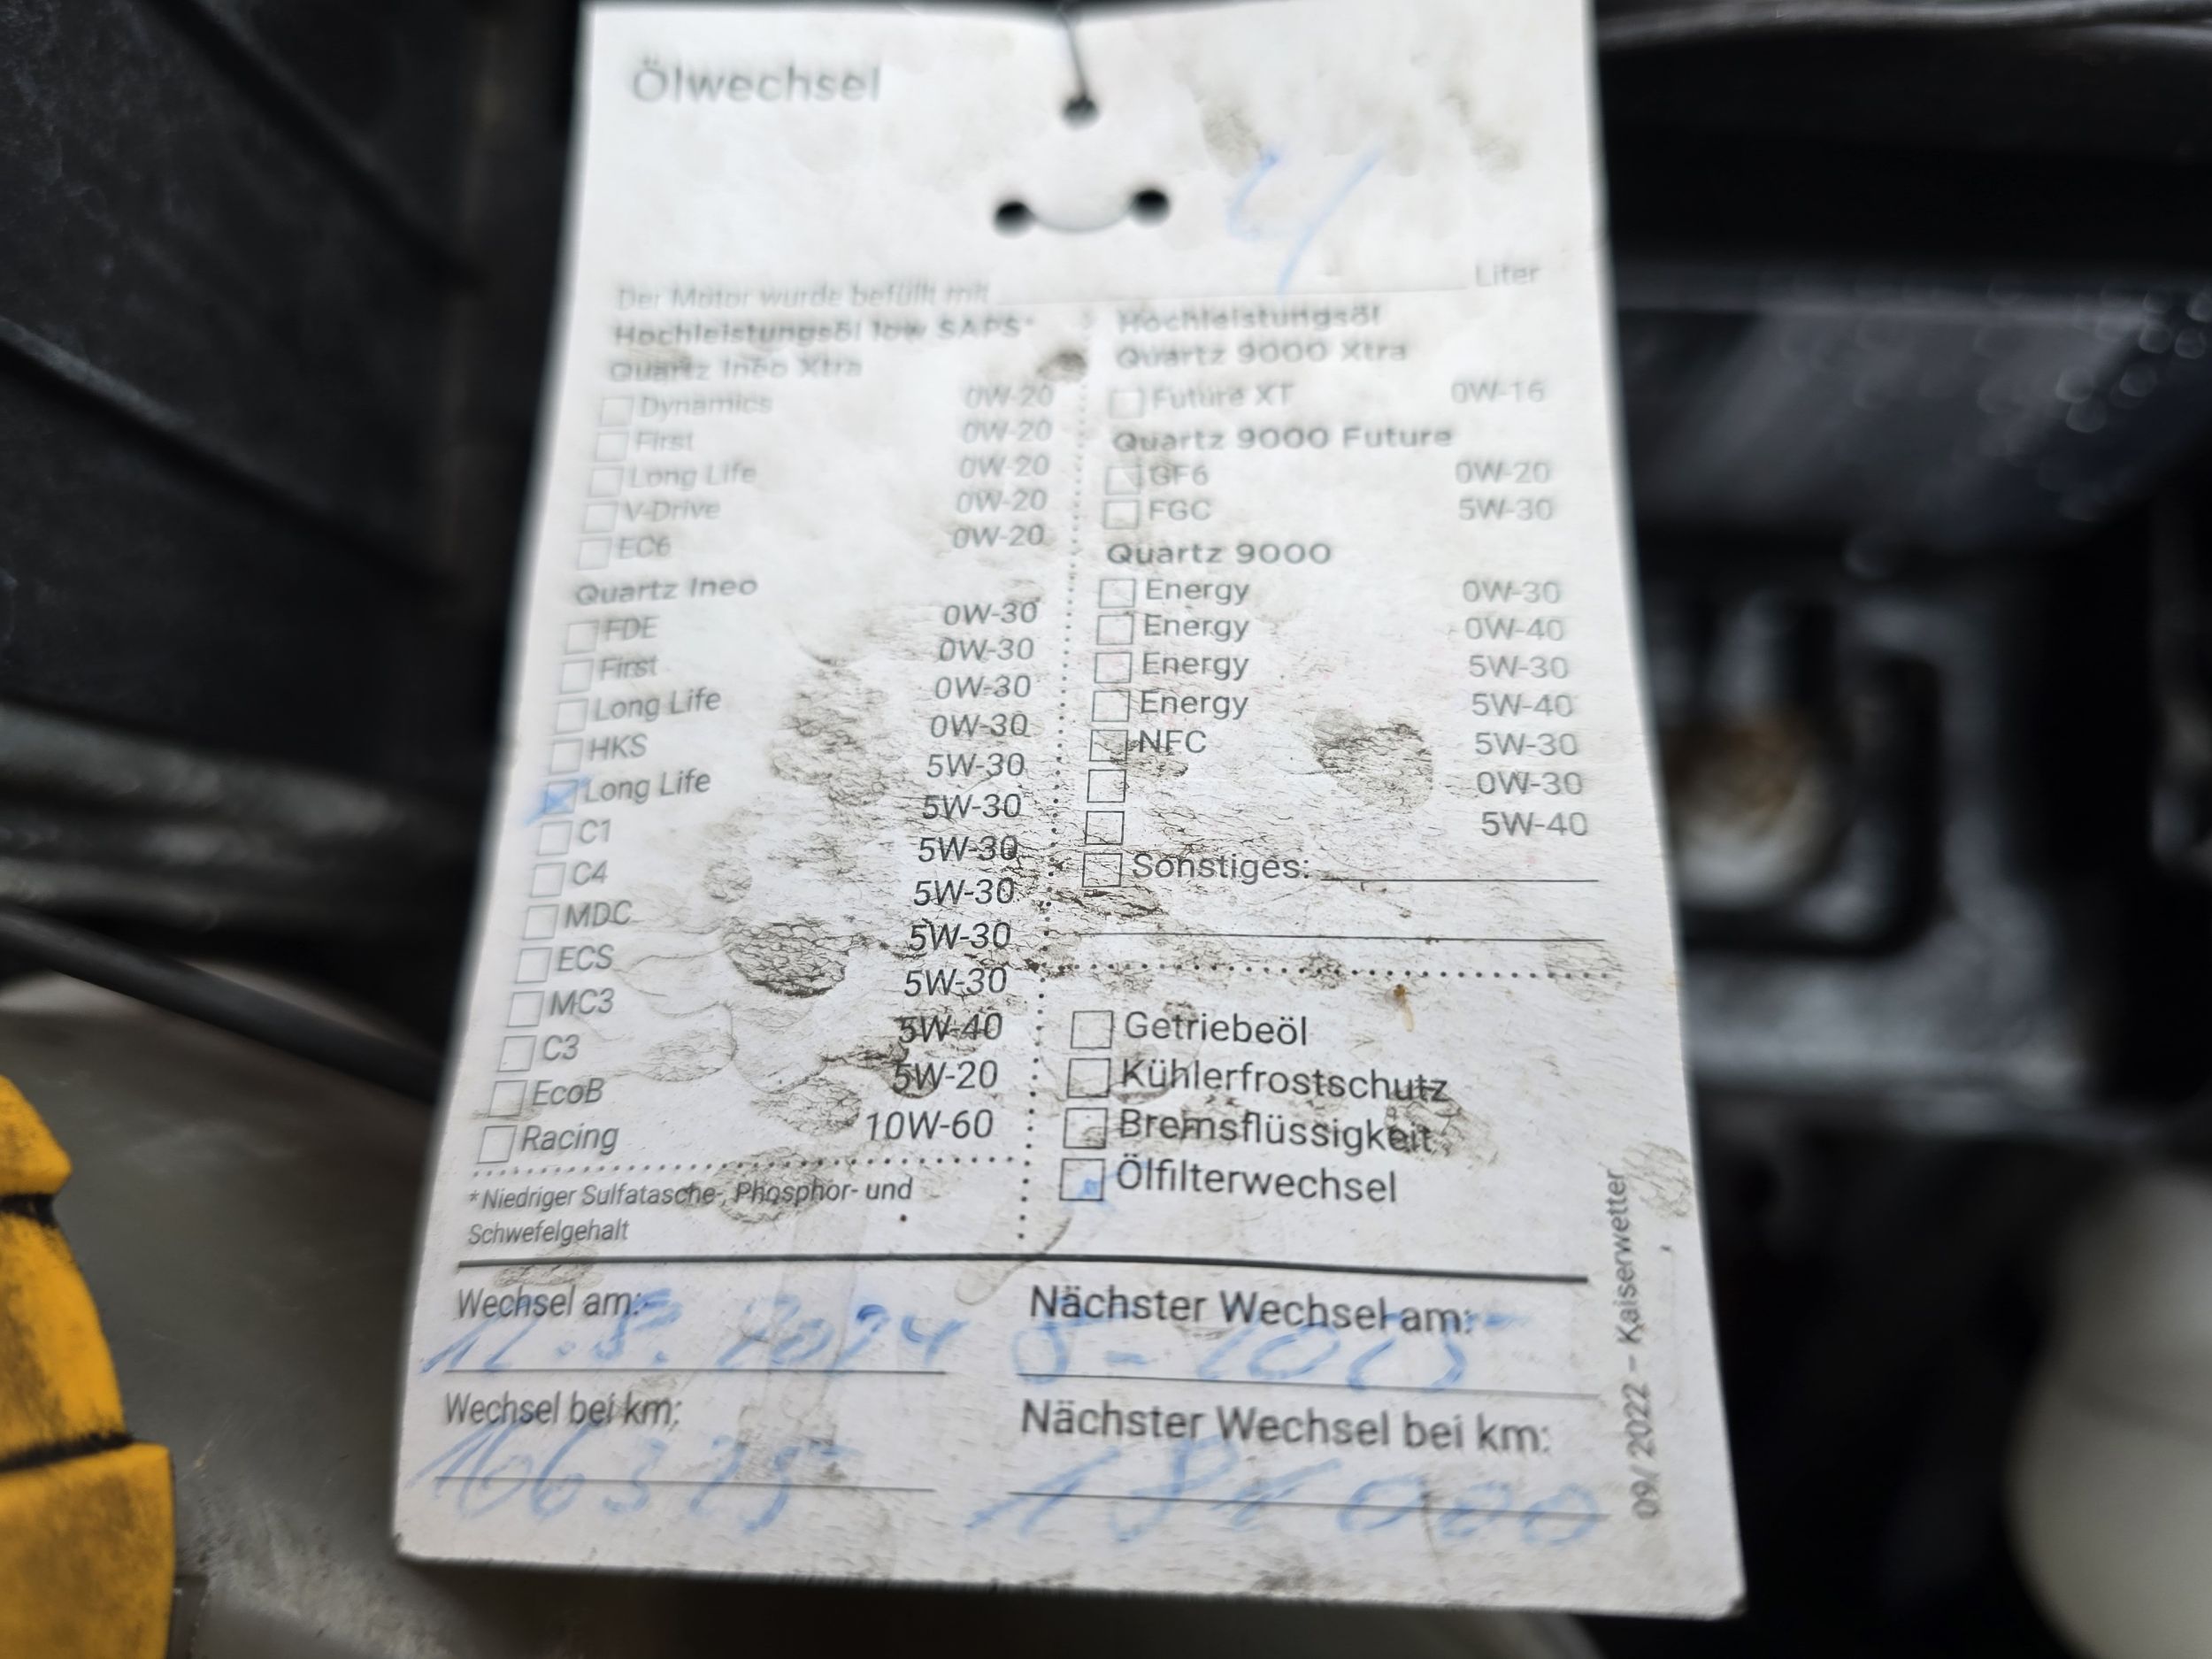 Ölwechsel
Der Motor wurde befüllt mit 4 Liter
Hochleistungsöl low SAPS*
Quartz Ineo Xtra
Dynamics 0W-20
First 0W-20
Long Life 0W-20
V-Drive 0W-20
EC6 0W-20
Quartz Ineo
FDE 0W-30
First 0W-30
Long Life 0W-30
HKS 0W-30
Long Life 5W-30
C1 5W-30
C4 5W-30
MDC 5W-30
ECS 5W-30
MC3 5W-30
C3 5W-40
EcoB 5W-20
Racing 10W-60
*Niedriger Sulfatasche-, Phosphor- und
Schwefelgehalt
Hochleistungsöl
Quartz 9000 Xtra
Future XT 0W-16
Quartz 9000 Future
GF6 0W-20
FGC 5W-30
Quartz 9000
Energy 0W-30
Energy 0W-40
Energy 5W-30
Energy 5W-40
NFC 5W-30
0W-30
5W-40
Sonstiges:
Getriebeöl
Kühlerfrostschutz
Bremsflüssigkeit
Ölfilterwechsel
Wechsel am:
12.8.2024
Nächster Wechsel am:
8-2025
Wechsel bei km:
166325
Nächster Wechsel bei km:
181000
09/2022 – Kaiserwetter